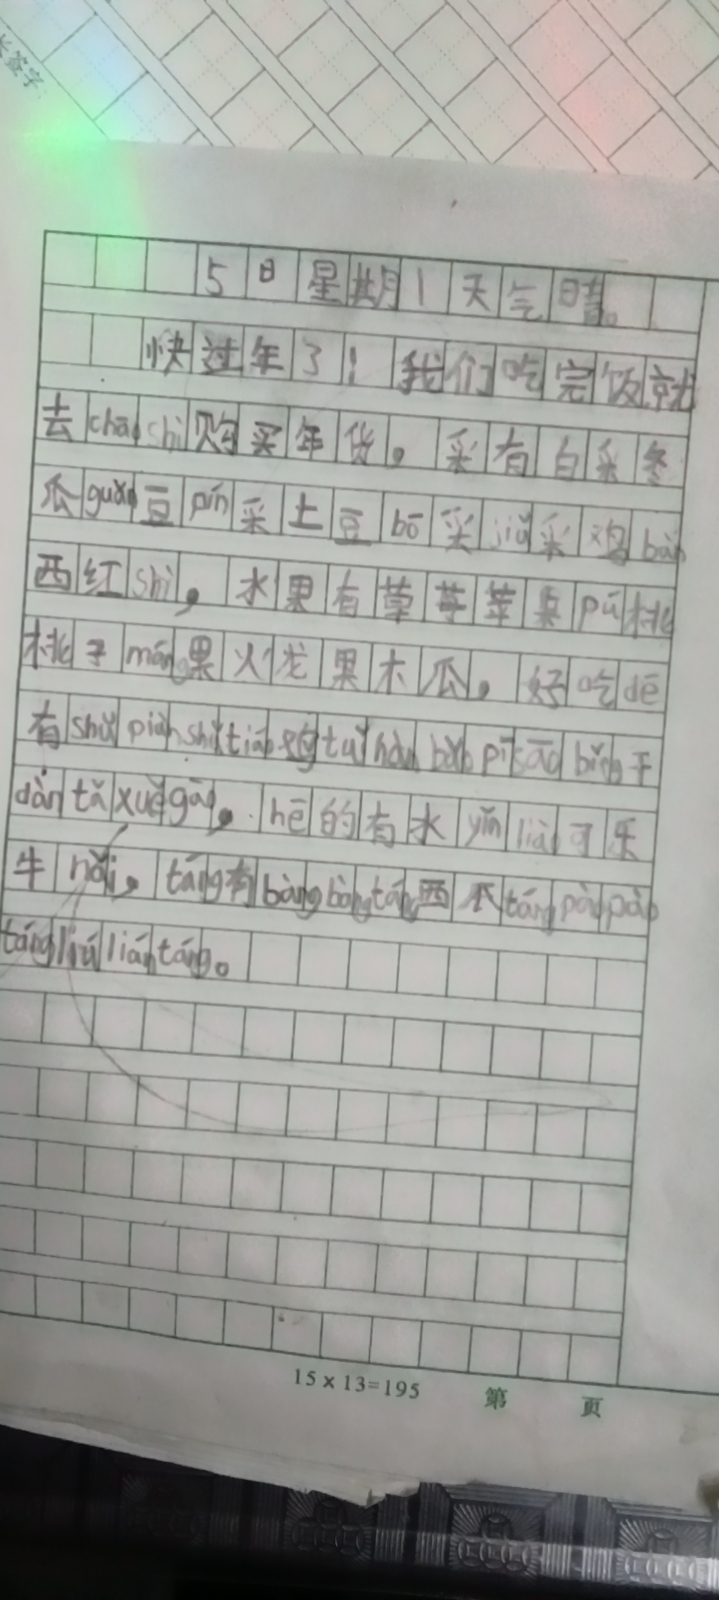 长签字
5日星期1天气晴。
快过年了！我们吃完饭就
去chāo shì购买年货。采有白采冬
瓜guǎn豆pín采土豆bō采jiǔ采鸡
西红shì，水果有草莓苹果pú桃
桃子máng果火龙果木瓜。好吃dē
有shǔ piàn shǔ tiáo鸡tuǐ hàn bǎo pī sà bǐng干
dàn tǎ xuě gāo。hē的有水yǐn liào可乐
牛nǎi。táng有bàng bàng táng西瓜táng pào pào
táng liú lián táng。
15×13=195 第 页